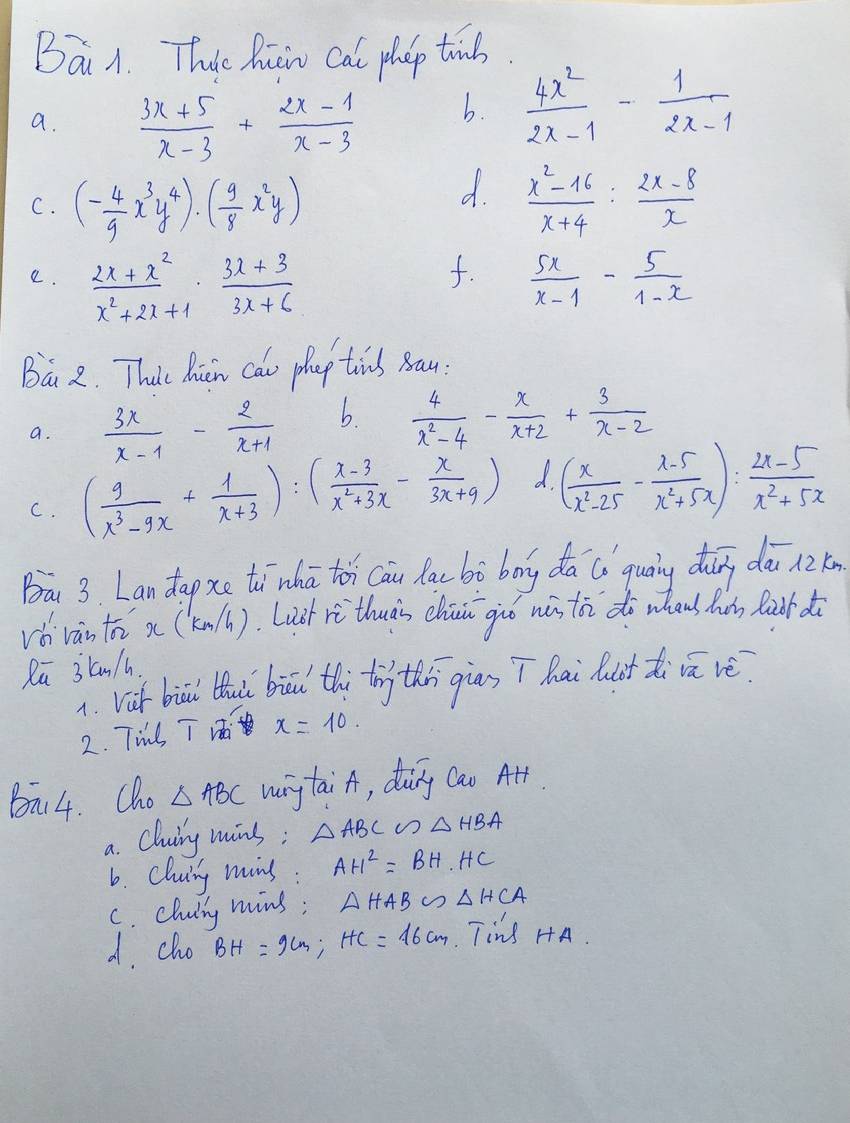 Bài 1. Thực hiện các phép tính.
a. (3x + 5)/(x - 3) + (2x - 1)/(x - 3) b. 4x²/(2x - 1) - 1/(2x - 1)
c. (-4/9 x³y⁴).(9/8 x²y) d. (x² - 16)/(x + 4) : (2x - 8)/x
e. (2x + x²)/(x² + 2x + 1) . (3x + 3)/(3x + 6) f. 5x/(x - 1) - 5/(1 - x)
Bài 2. Thực hiện các phép tính sau:
a. 3x/(x - 1) - 2/(x + 1) b. 4/(x² - 4) - x/(x + 2) + 3/(x - 2)
c. (9/(x³ - 9x) + 1/(x + 3)) : ((x - 3)/(x² + 3x) - x/(3x + 9)) d. (x/(x² - 25) - (x - 5)/(x² + 5x)) : (2x - 5)/(x² + 5x)
Bài 3. Lan đạp xe từ nhà tới câu lạc bộ bóng đá có quảng đường dài 12 km.
với vân tốc x (km/h). Lượt về thuận chiều gió nên tốc độ nhanh hơn lượt đi
là 3km/h.
1. Viết biểu thức biểu thị tổng thời gian T hai lượt đi và về.
2. Tính T với x = 10.
Bài 4. Cho △ ABC vuông tại A, đường cao AH.
a. Chứng minh: △ ABC ∽ △ HBA
b. Chứng minh: AH² = BH.HC
c. Chứng minh: △ HAB ∽ △ HCA
d. Cho BH = 9cm; HC = 16cm. Tính HA.